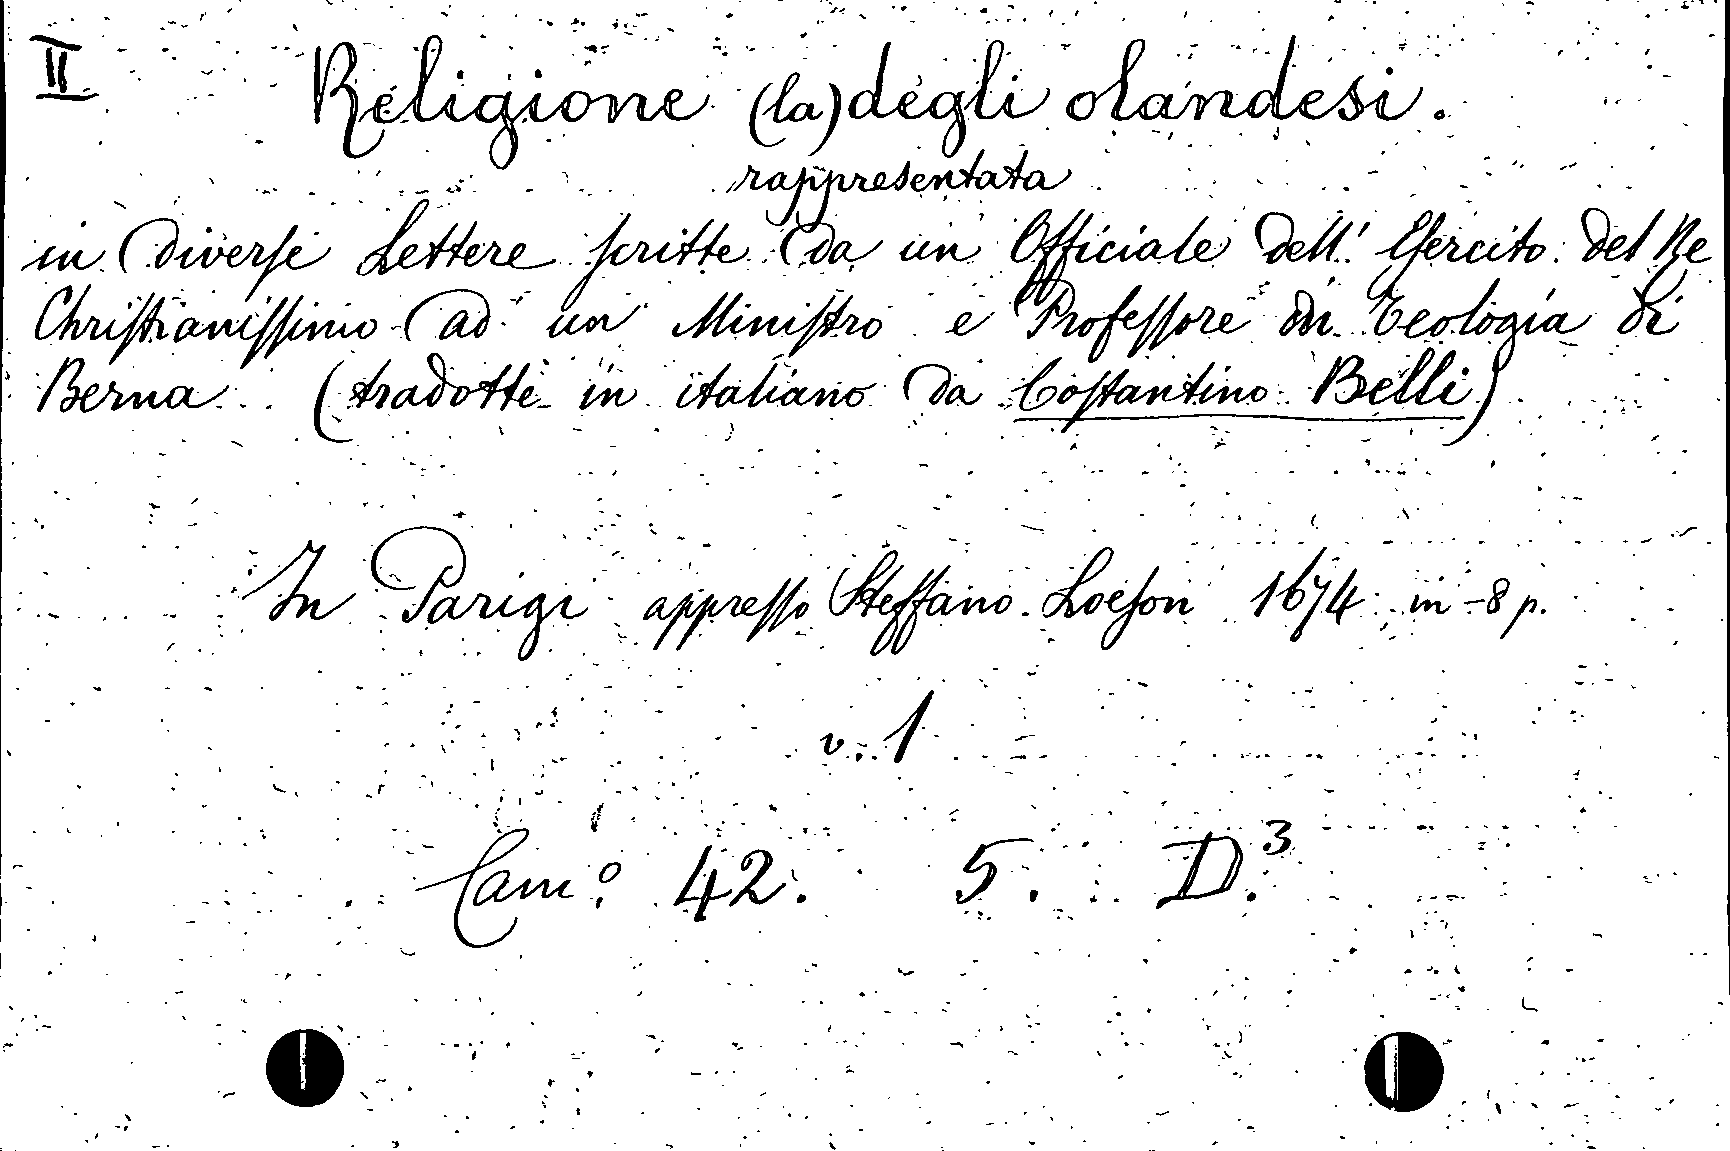 II Religione (la) degli olandesi.
rappresentata
in diverſe Lettere ſcritte da un Officiale dell' Eſercito del Re
Chriſtianiſſimo ad un Miniſtro e Profeſſore in Teologia di
Berna (tradotte in italiano da Coſtantino Belli)
In Parigi appreſſo Steffano Loeſon 1674 in-8 p.
v. 1
Cam.º 42. 5. D.³